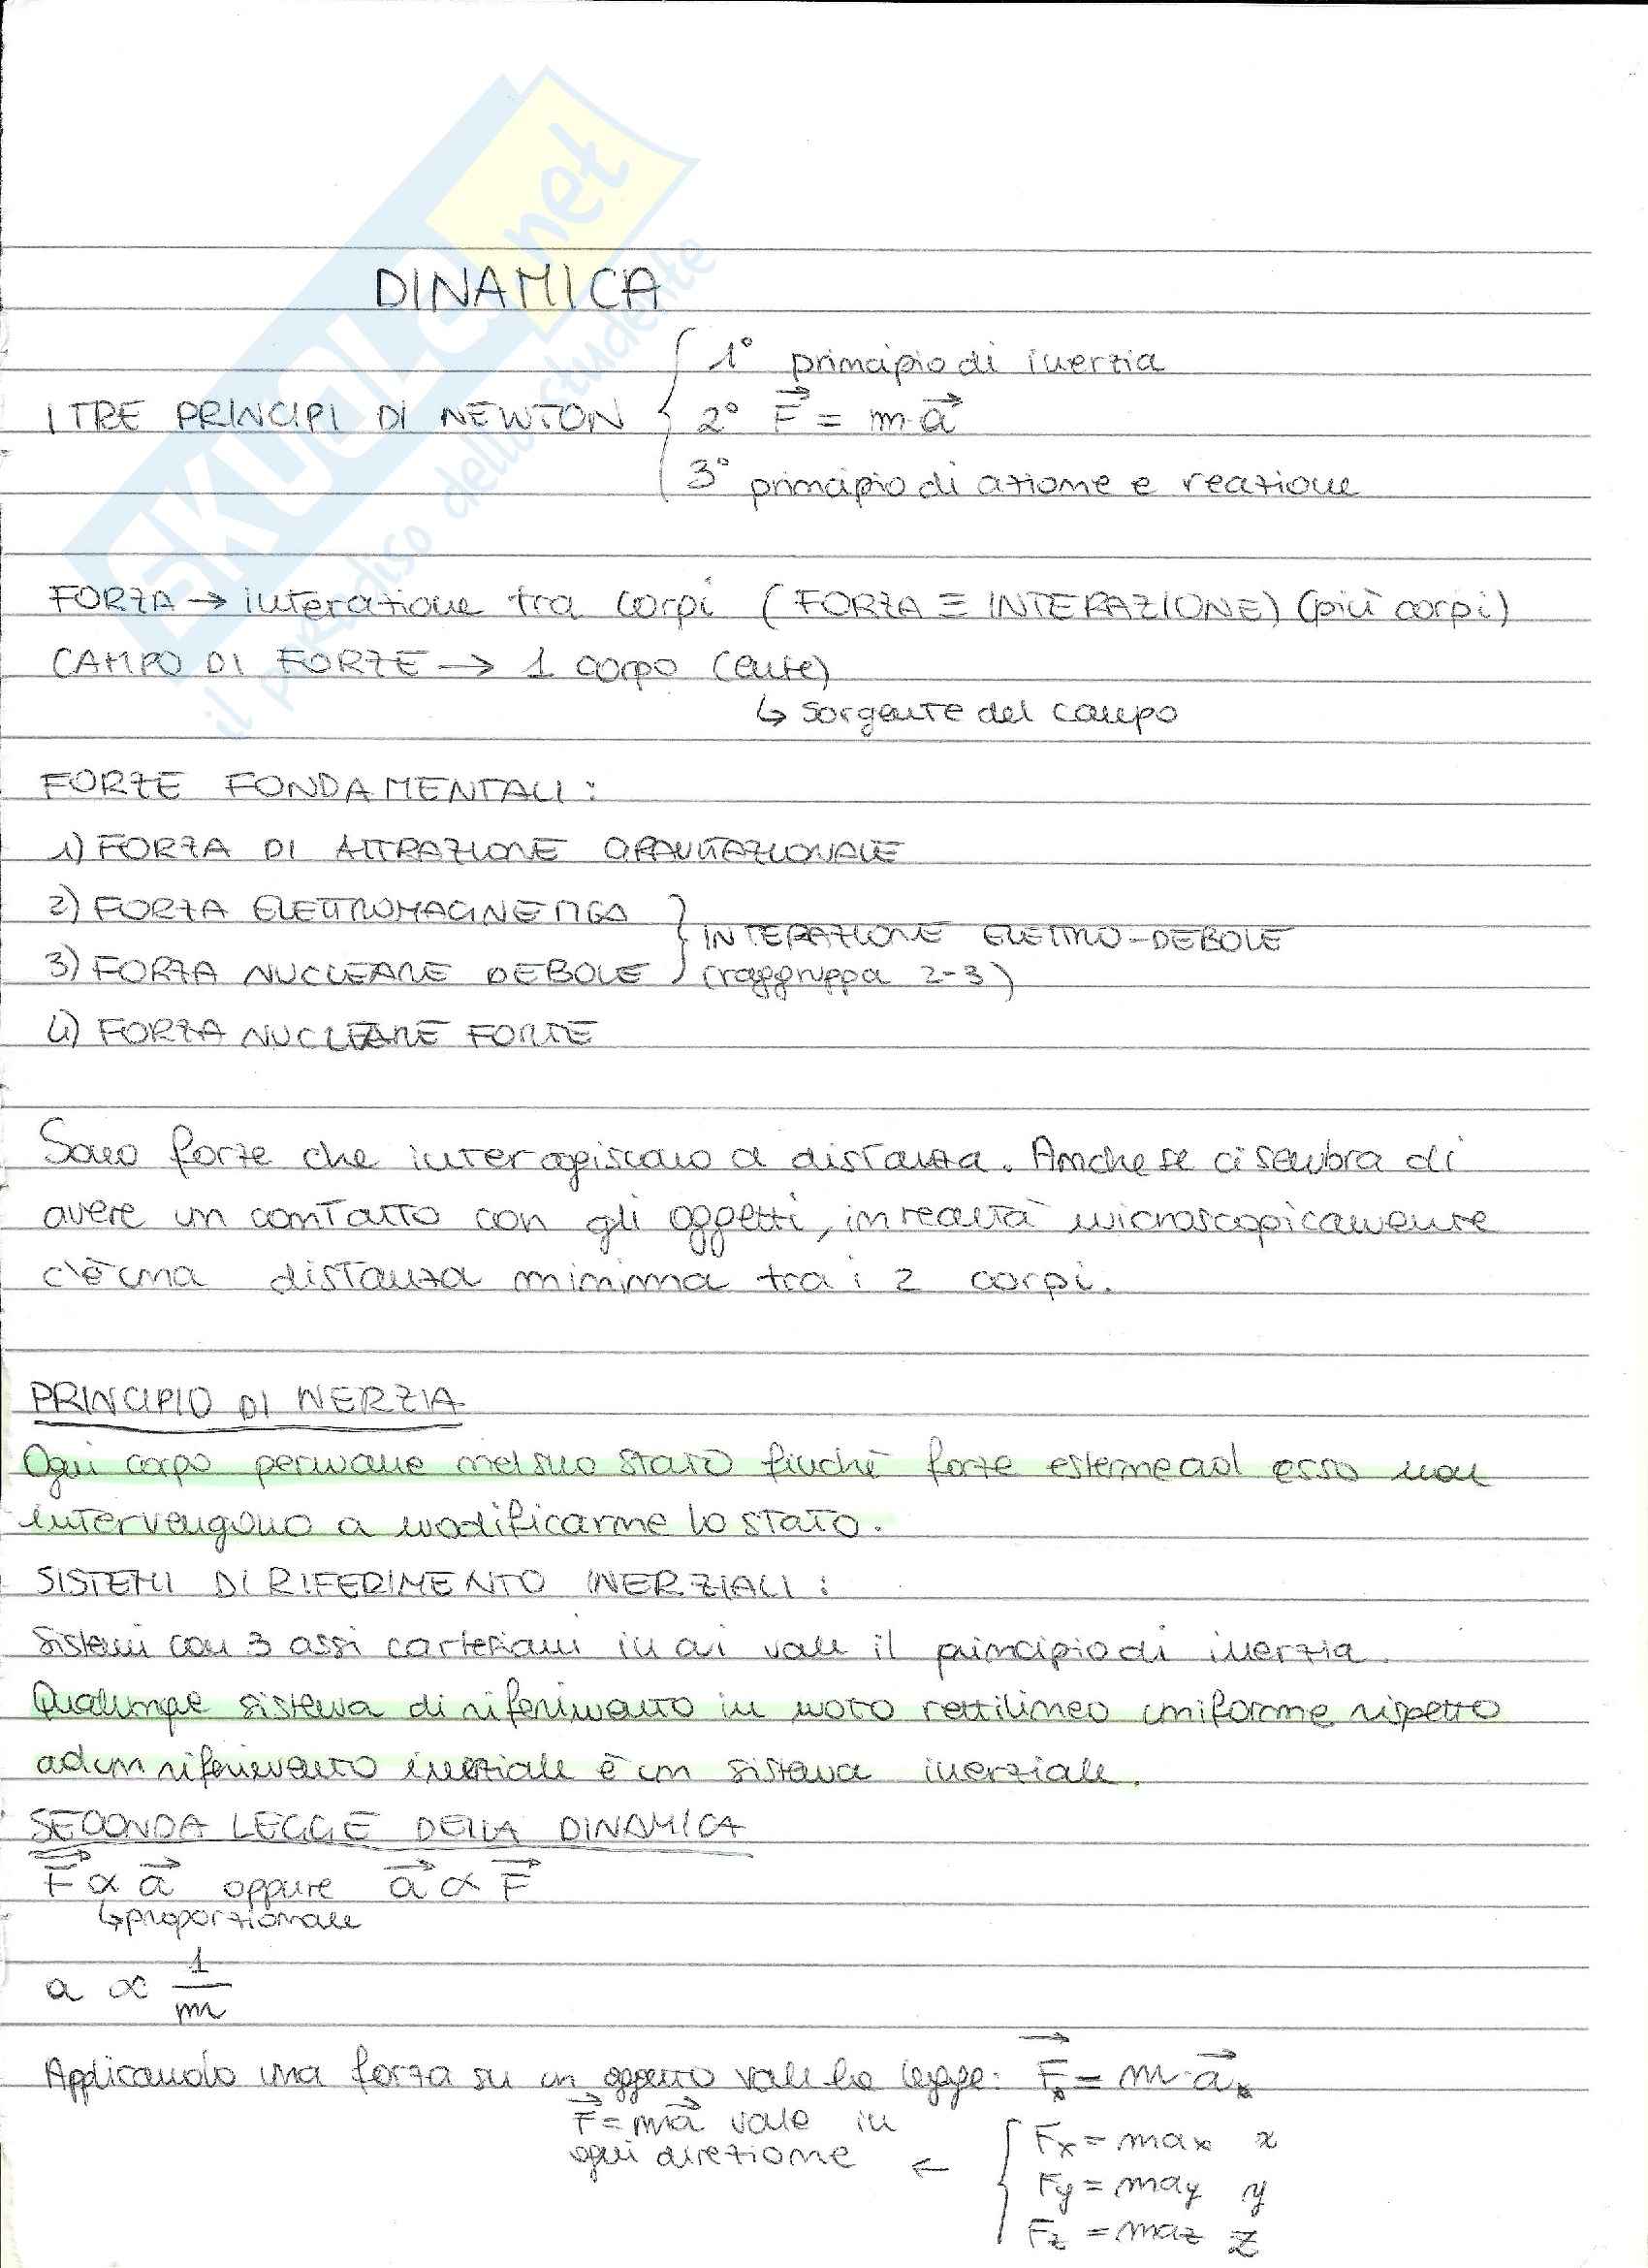 SKUOLA.net
il paradiso dello studente
DINAMICA
I TRE PRINCIPI DI NEWTON { 1° principio di inerzia
2° F⃗ = m·a⃗
3° principio di azione e reazione
FORZA → interazione tra corpi (FORZA ≡ INTERAZIONE) (più corpi)
CAMPO DI FORZE → 1 corpo (ente)
↳ sorgente del campo
FORZE FONDAMENTALI:
1) FORZA DI ATTRAZIONE GRAVITAZIONALE
2) FORZA ELETTROMAGNETICA
} INTERAZIONE ELETTRO-DEBOLE
3) FORZA NUCLEARE DEBOLE (raggruppa 2-3)
4) FORZA NUCLEARE FORTE
Sono forze che interagiscono a distanza. Anche se ci sembra di
avere un contatto con gli oggetti, in realtà microscopicamente
c'è una distanza minima tra i 2 corpi.
PRINCIPIO DI INERZIA
Ogni corpo permane nel suo stato finché forze esterne ad esso non
intervengono a modificarne lo stato.
SISTEMI DI RIFERIMENTO INERZIALI:
Sistemi con 3 assi cartesiani in cui vale il principio di inerzia.
Qualunque sistema di riferimento in moto rettilineo uniforme rispetto
ad un riferimento inerziale è un sistema inerziale.
SECONDA LEGGE DELLA DINAMICA
F⃗ ∝ a⃗ oppure a⃗ ∝ F⃗
↳ proporzionale
a ∝ 1/m
Applicando una forza su un oggetto vale la legge: F⃗ = m·a⃗
F⃗ = ma⃗ vale in
ogni direzione ← { Fx = max x
Fy = may y
Fz = maz z